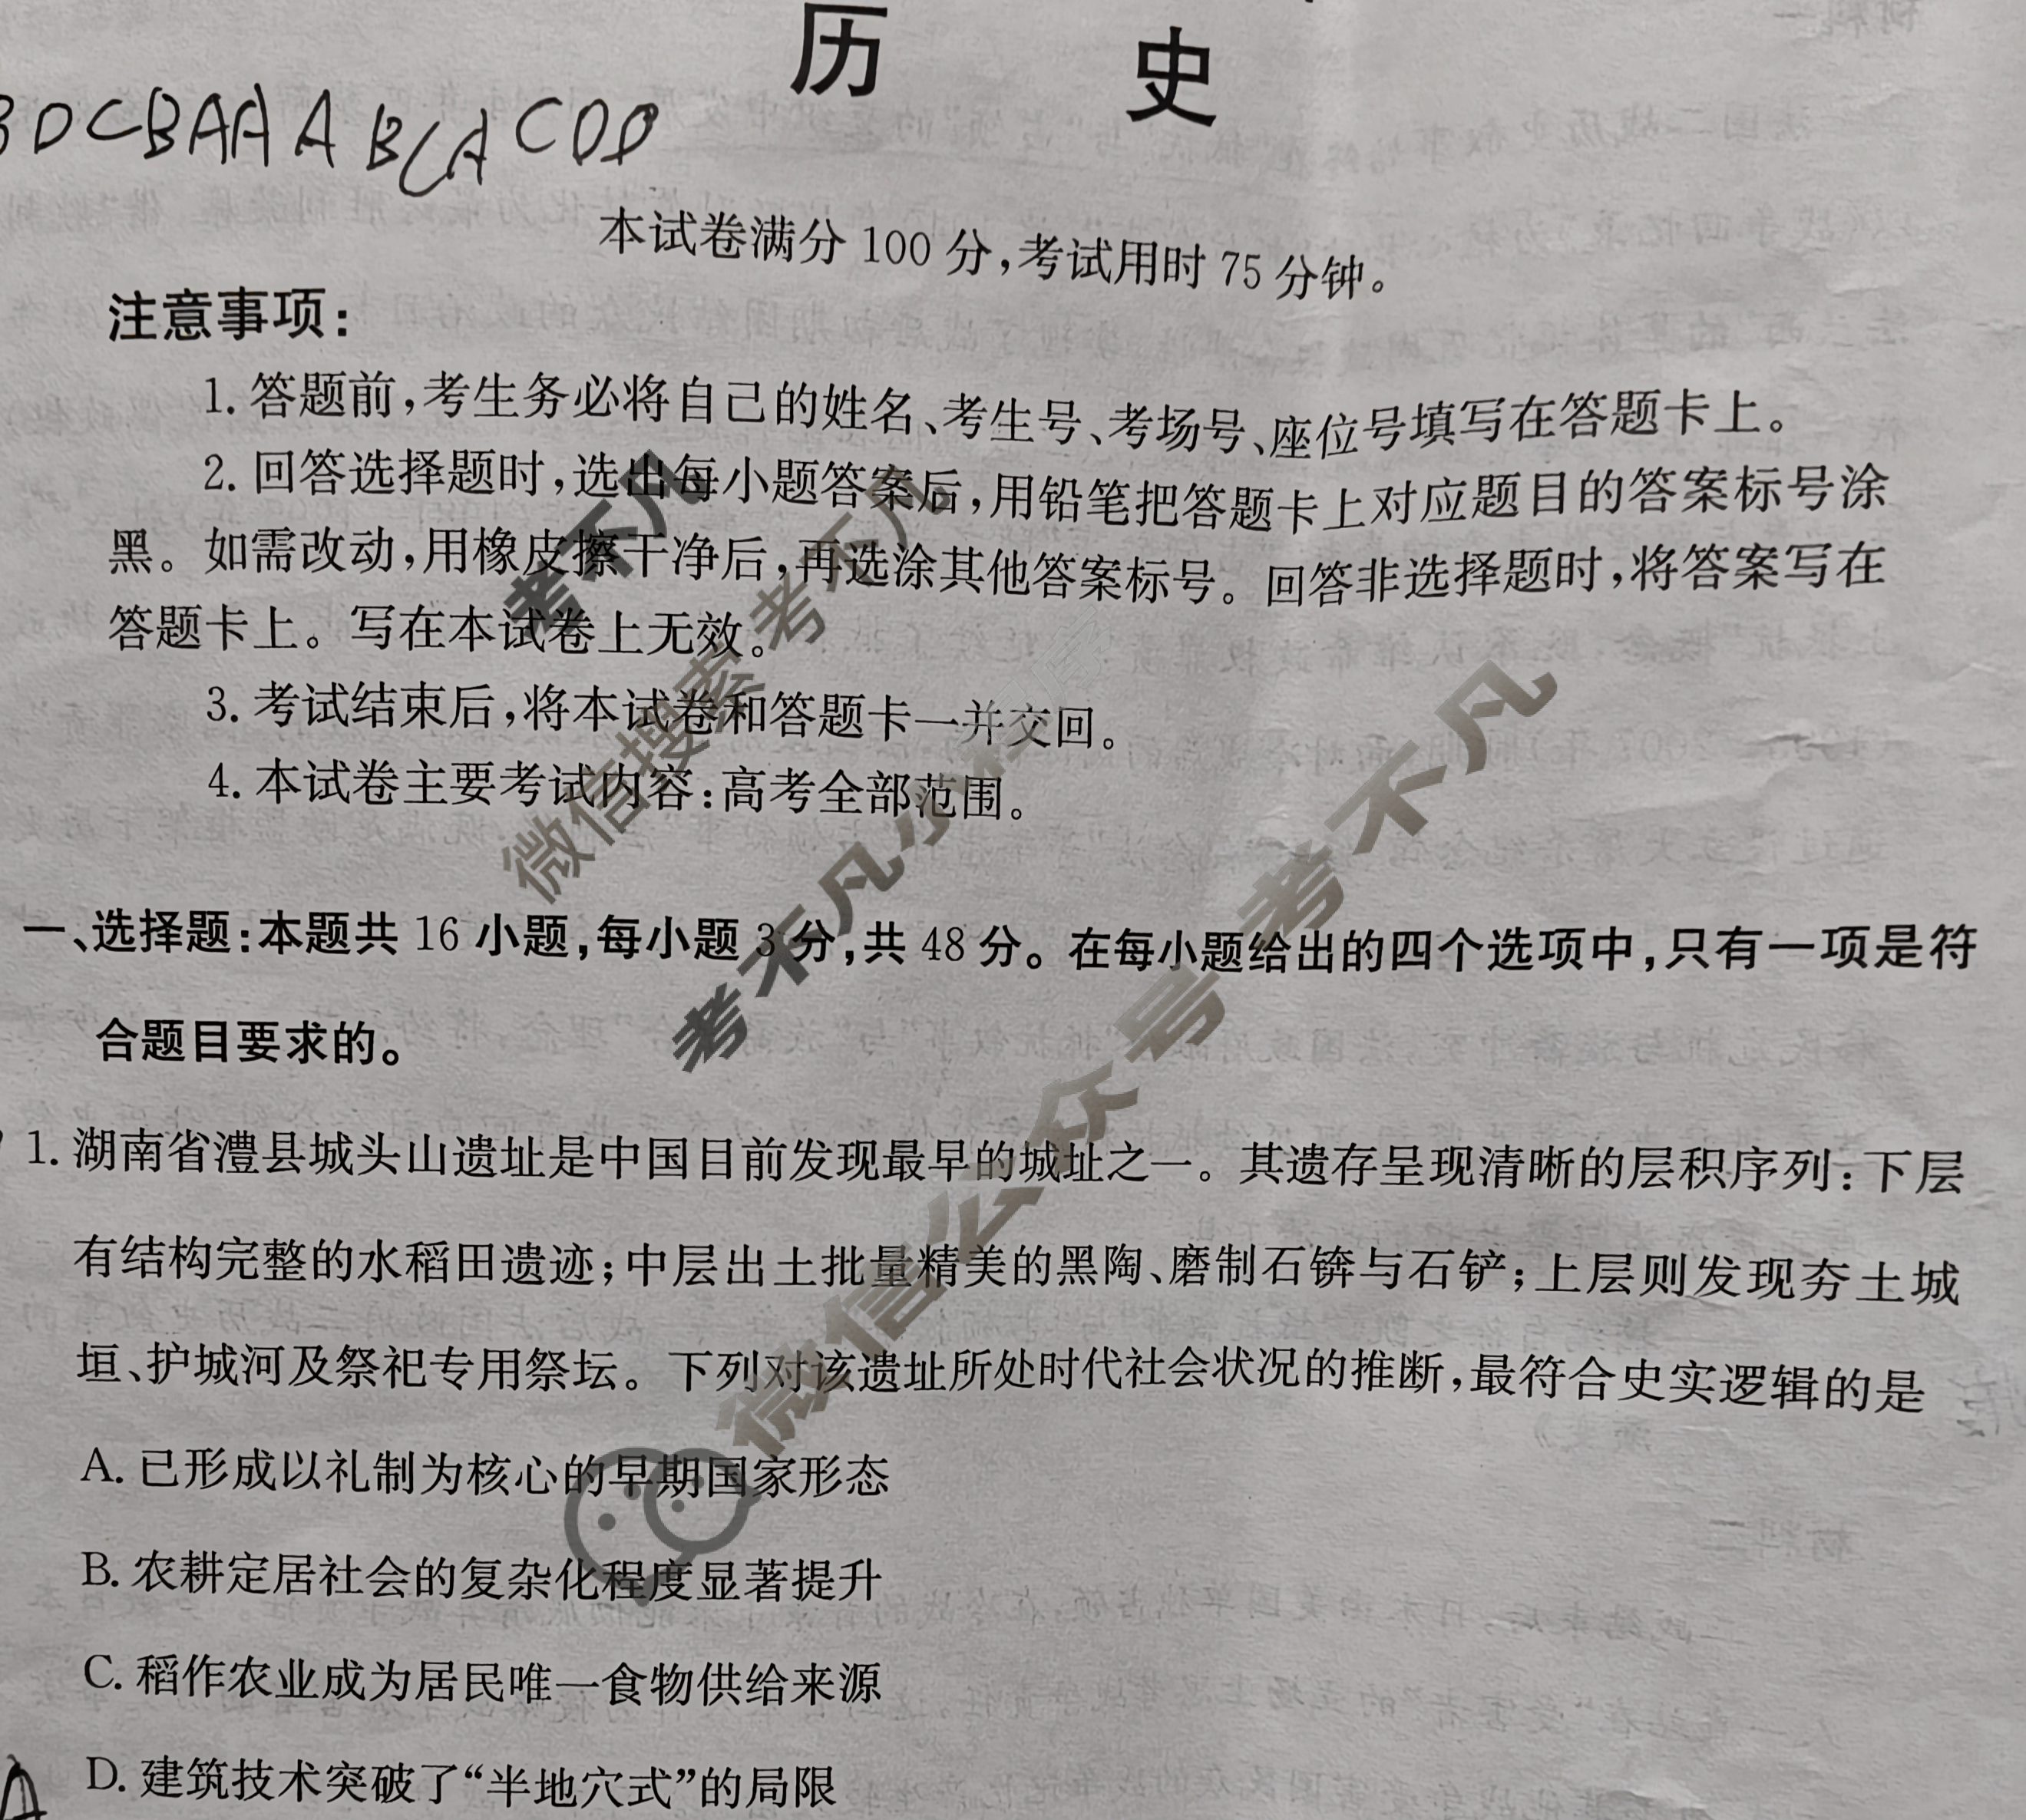 历 史
BDCBAAABCACDD
本试卷满分 100 分,考试用时 75 分钟。
注意事项:
1. 答题前,考生务必将自己的姓名、考生号、考场号、座位号填写在答题卡上。
2. 回答选择题时,选出每小题答案后,用铅笔把答题卡上对应题目的答案标号涂
黑。如需改动,用橡皮擦干净后,再选涂其他答案标号。回答非选择题时,将答案写在
答题卡上。写在本试卷上无效。
3. 考试结束后,将本试卷和答题卡一并交回。
4. 本试卷主要考试内容:高考全部范围。
考不凡
微信搜索 考不凡
考不凡小程序
微信公众号 考不凡
一、选择题:本题共 16 小题,每小题 3 分,共 48 分。在每小题给出的四个选项中,只有一项是符
合题目要求的。
1. 湖南省澧县城头山遗址是中国目前发现最早的城址之一。其遗存呈现清晰的层积序列:下层
有结构完整的水稻田遗迹;中层出土批量精美的黑陶、磨制石锛与石铲;上层则发现夯土城
垣、护城河及祭祀专用祭坛。下列对该遗址所处时代社会状况的推断,最符合史实逻辑的是
A. 已形成以礼制为核心的早期国家形态
B. 农耕定居社会的复杂化程度显著提升
C. 稻作农业成为居民唯一食物供给来源
D. 建筑技术突破了“半地穴式”的局限
A